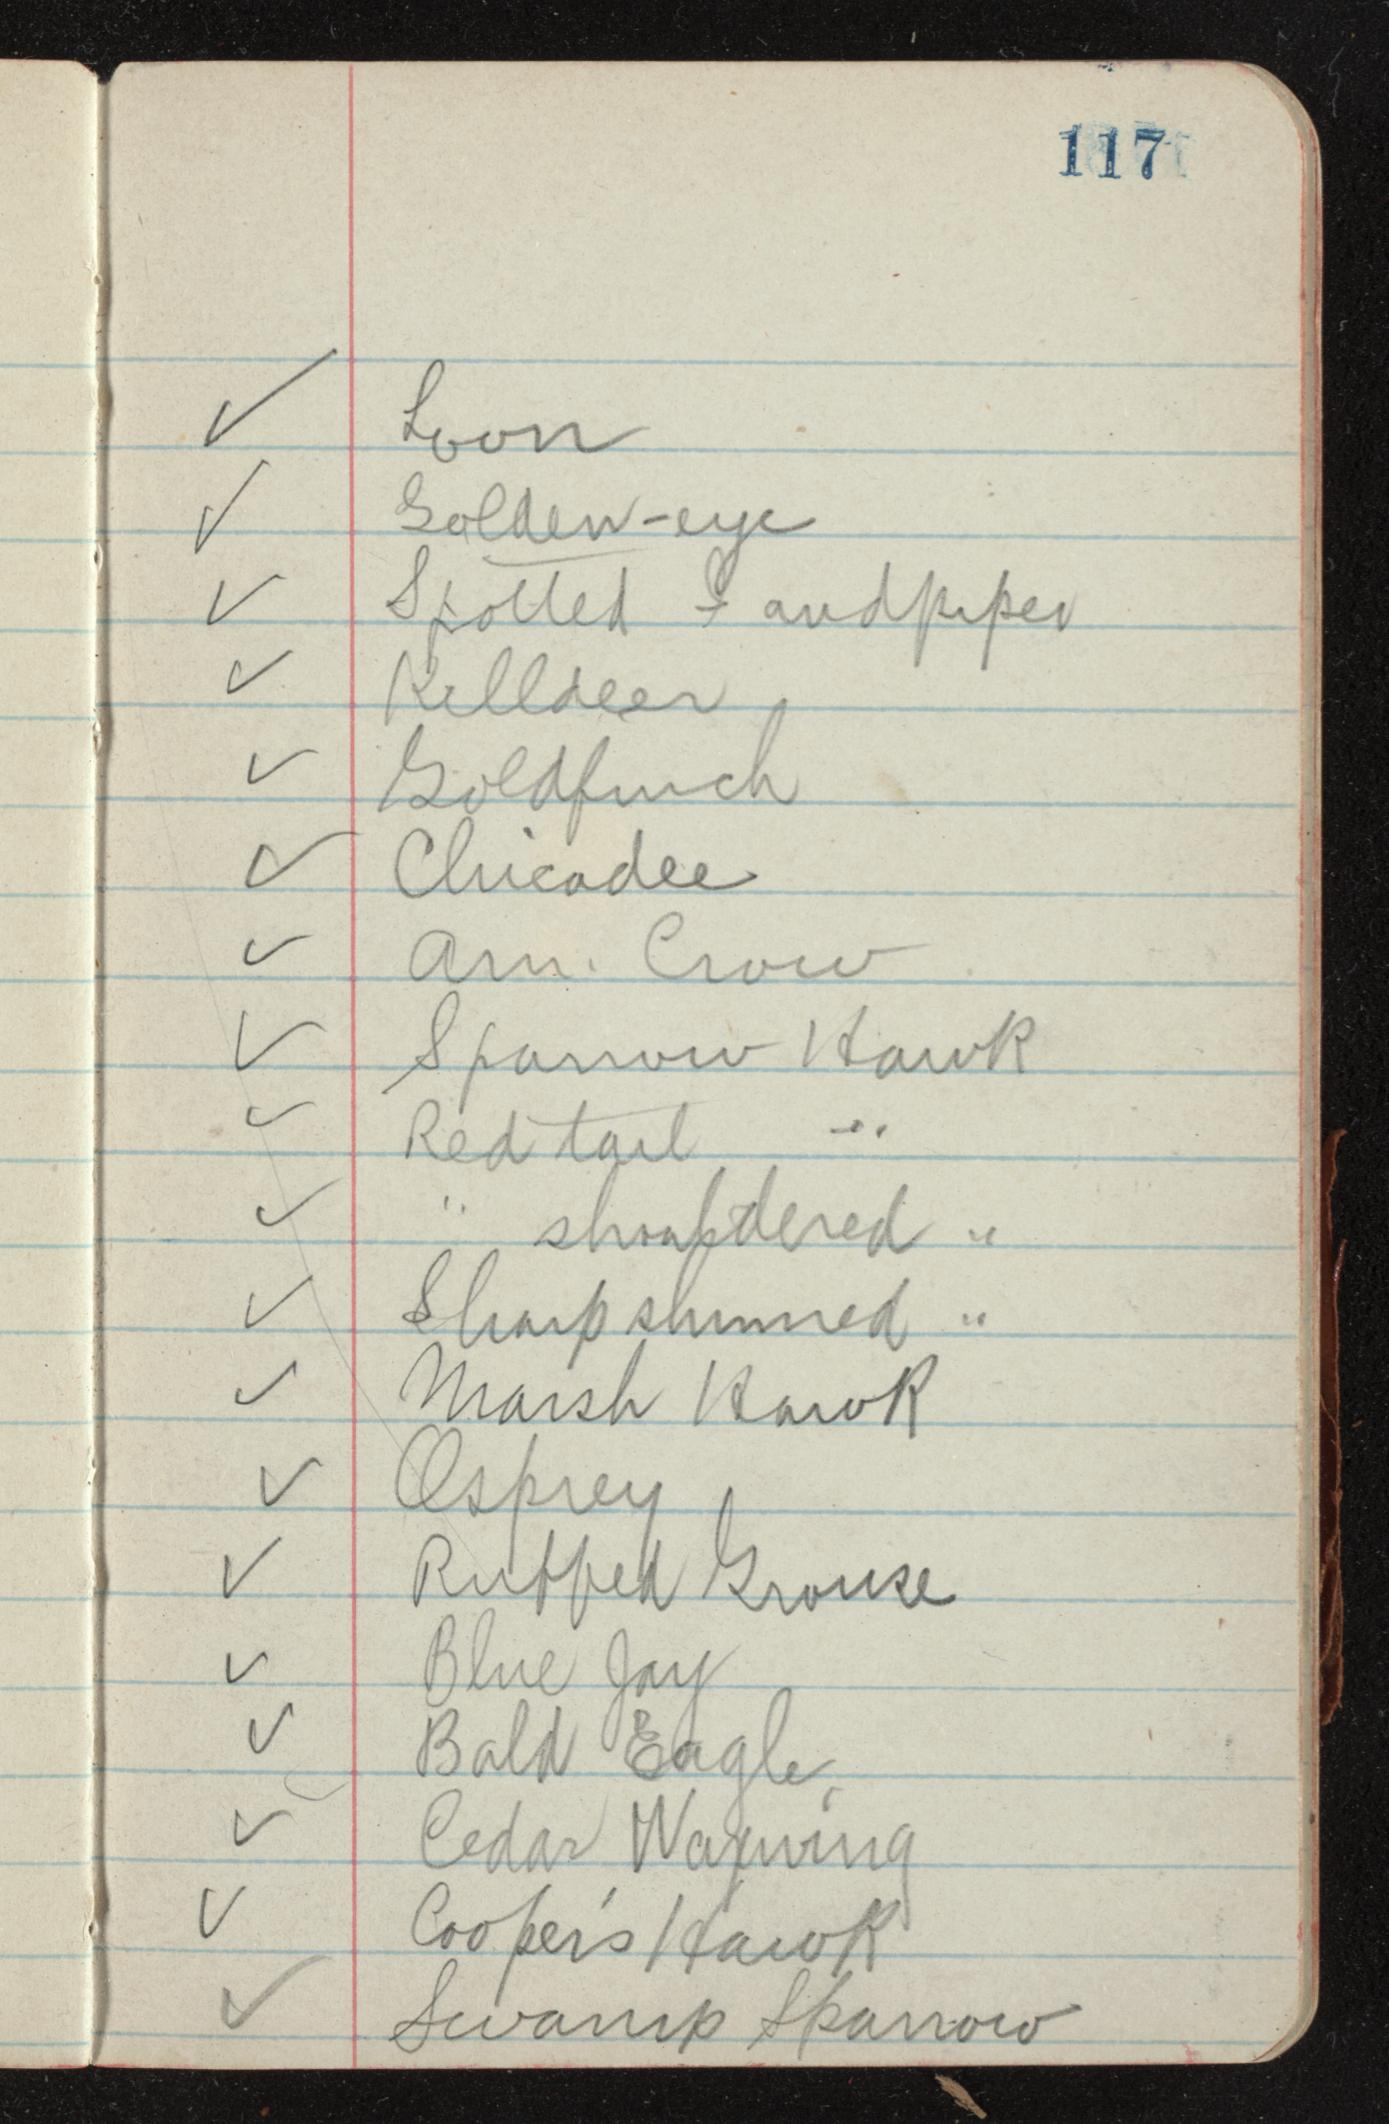 117
✓ Loon
✓ Golden-eye
✓ Spotted Sandpiper
✓ Killdeer
✓ Goldfinch
✓ Chicadee
✓ Am. Crow
✓ Sparrow Hawk
✓ Red tail "
✓ " shouldered "
✓ Sharp shinned "
✓ Marsh Hawk
✓ Osprey
✓ Ruffed Grouse
✓ Blue Jay
✓ Bald Eagle
✓ Cedar Waxwing
✓ Cooper's Hawk
✓ Swamp Sparrow